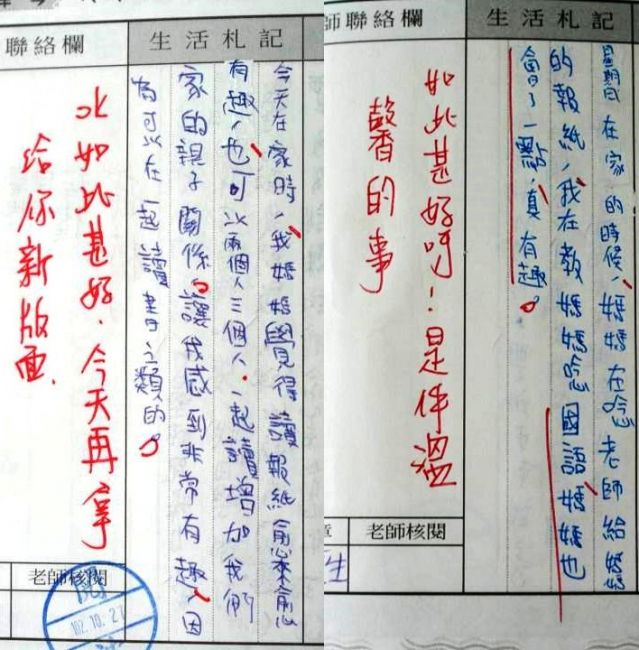 生活札記
今天在家時，我媽媽覺得讀報紙愈來愈
有趣，也可以兩個人三個人，一起讀增加我們
家的親子關係。讓我感到非常有趣，因
為可以在一起讀書之類的。
聯絡欄
如此甚好，今天再拿
給你新版面。
老師核閱
閱
102.10.27
生活札記
星期日在家的時候，媽媽在唸老師給媽媽
的報紙，我在教媽媽唸國語，媽媽也
會了一點，真有趣。
師聯絡欄
如此甚好呀！是件溫
馨的事
老師核閱
章
生